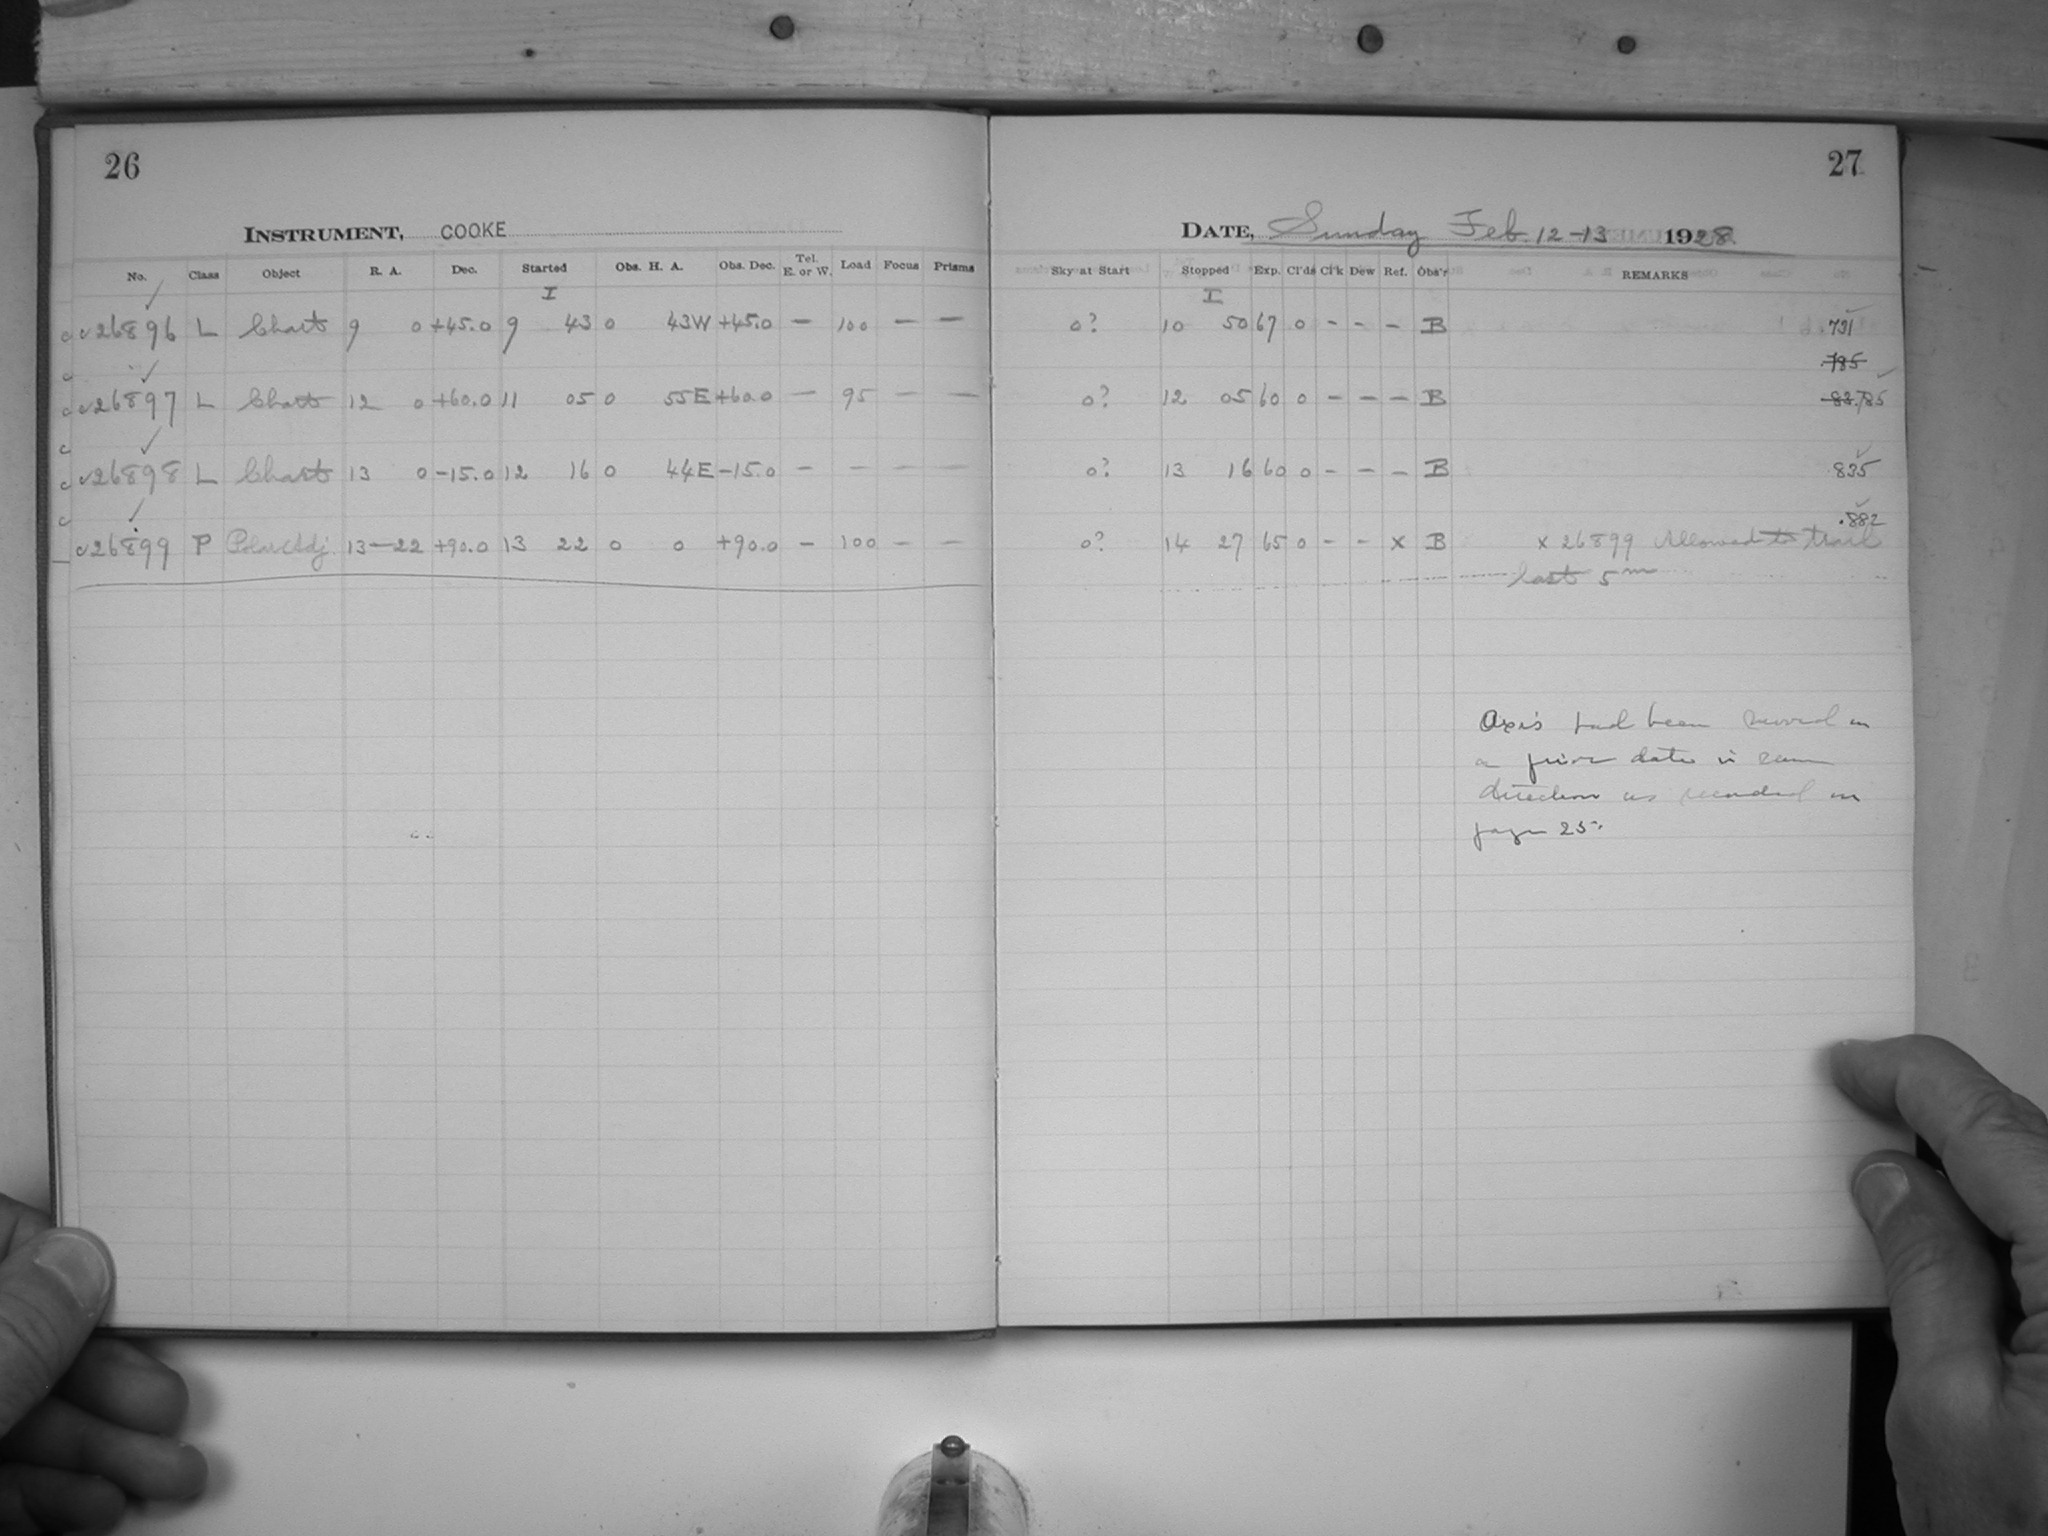 26
INSTRUMENT, COOKE
No. Class Object R. A. Dec. Started Obs. H. A. Obs. Dec. Tel. E. or W. Load Focus Prisms
I
c v26896 L Chart 9 0 +45.0 9 43 0 43W +45.0 — 100 — —
c v26897 L Chart 12 0 +60.0 11 05 0 55E +60.0 — 95 — —
c v26898 L Chart 13 0 -15.0 12 16 0 44E -15.0 — — — —
c26899 P Polar Adj. 13—22 +90.0 13 22 0 0 +90.0 — 100 — —
27
DATE, Sunday Feb 12-13 1928
Sky at Start Stopped Exp. Cl'ds Cl'k Dew Ref. Obs'r REMARKS
I
0? 10 50 67 0 - - - B .731
.785
0? 12 05 60 0 - - - B .83 .785
0? 13 16 60 0 - - - B .835
.882
0? 14 27 65 0 - - x B x 26899 Allowed to trail
last 5m
Axis had been moved on
a prior date in same
direction as recorded on
page 25.